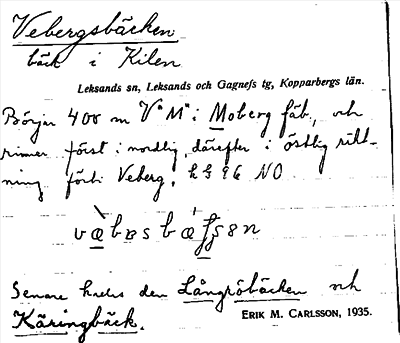 Vebergsbäcken
bäck i Kilen
Leksands sn, Leksands och Gagnefs tg, Kopparbergs län.
Börjar 400 m V "M" i Moberg fäb, och
rinner först i nordlig, därefter i östlig rikt-
ning förbi Veberg, NO
Senare kallas den Långröbäcken och
Käringbäck.
ERIK M. CARLSSON, 1935.